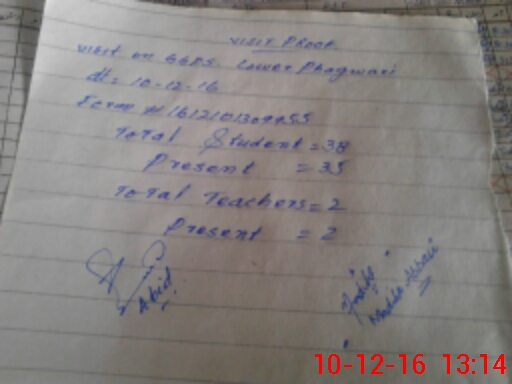 Visit Proof
Visit on GGPS. Lower Phagwari
dt: 10-12-16
Form # 1612101309455
Total Student = 38
Present = 35
Total Teachers = 2
Present = 2
Abid
10-12-16 13:14